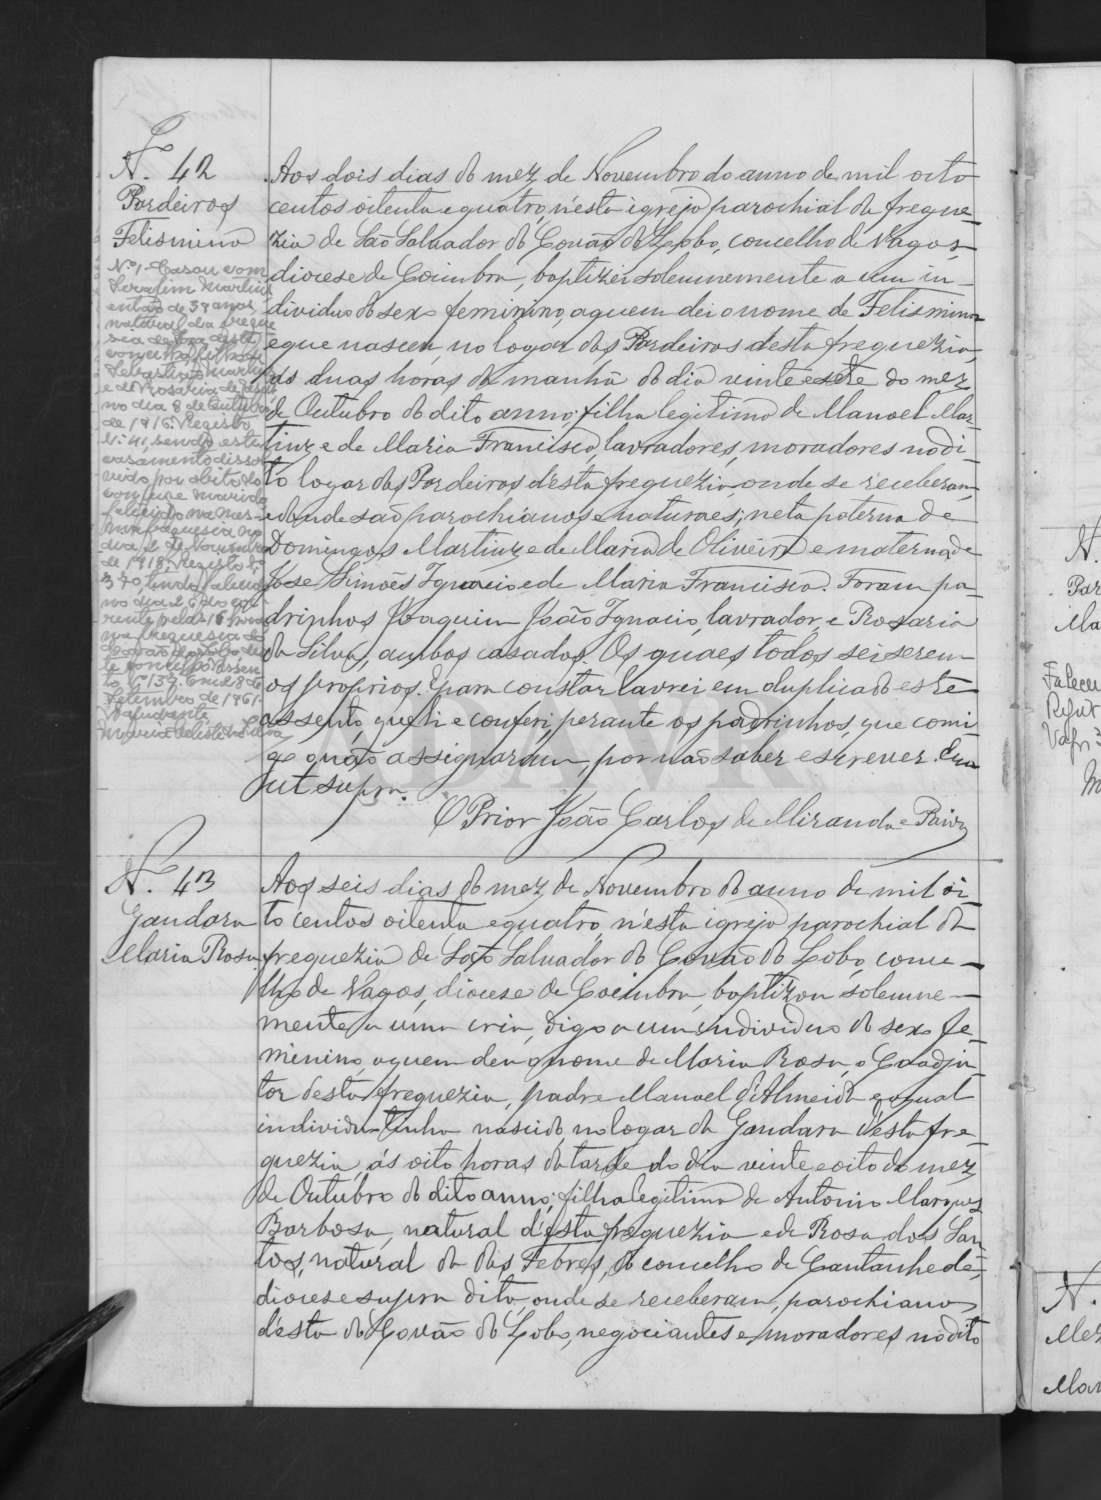 N. 42
Pardeiros
Felismina
Nº 1 - Casou com
Serafim Martins
então de 37 anos,
natural da fregue
sia de
concelho, filho de
Sebastião Martins
e de Rosaria de
no dia 8 de Outubro
de 1916. Registo
Nº 41, sendo este
casamento dissol
vido por obito do
conjuge marido
falecido na mes
ma freguesia no
dia 2 de Novembro
de 1918. Registo Nº
370, tendo falecido
no dia 26 do cor
rente pelas 16 horas
na freguesia de
Covão do Lobo, des
te concelho. Assen
to Nº 137. Em 28 de
Setembro de 1961.
O Ajudante
Maria Celeste Silva
Aos dois dias do mez de Novembro do anno de mil oito
centos oitenta e quatro, n'esta igreja parochial da fregue-
zia de São Salvador do Covão do Lobo, concelho de Vagos,
diocese de Coimbra, baptizei solemnemente a um in-
dividuo do sexo feminino, a quem dei o nome de Felismina
e que nasceu, no logar dos Pardeiros desta freguezia,
ás duas horas da manhã do dia vinte e sete do mez
de Outubro do dito anno; filha legitima de Manoel Mar-
tinz e de Maria Francisca, lavradores, moradores no di-
to logar dos Pardeiros d'esta freguezia, onde se receberam,
e donde são parochianos e naturaes; neta paterna de
Domingos Martinz e de Maria de Oliveira e materna de
José Simões Ignacio e de Maria Francisca. Foram pa-
drinhos Joaquim João Ignacio, lavrador, e Rosaria
da Silva, ambos casados. Os quaes todos sei serem
os proprios. E para constar lavrei em duplicado este
assento, que li e conferi, perante os padrinhos, que comi-
go não assignaram, por não saber escrever. Era
ut supra.
O Prior João Carlos de Miranda e Paiva
N. 43
Gandara
Maria Rosa
Aos seis dias do mez de Novembro do anno de mil oi-
to centos oitenta e quatro, n'esta igreja parochial da
freguezia de São Salvador do Covão do Lobo, conce-
lho de Vagos, diocese de Coimbra, baptizou solemne-
mente a uma cria, digo a um individuo do sexo fe-
minino, a quem deu o nome de Maria Rosa, o Coadju-
tor desta freguezia, padre Manoel d'Almeida e o qual
individuo tinha nascido no logar da Gandara d'esta fre-
guezia, ás oito horas da tarde do dia vinte e oito do mez
de Outubro do dito anno; filha legitima de Antonio Marques
Barbosa, natural d'esta freguezia e de Rosa dos San-
tos, natural da das Febres, do concelho de Cantanhede,
diocese supra dita, onde se receberam, parochianos
d'esta do Covão do Lobo, negociantes e moradores no dito
N.
Par
Ma
Faleceu
N.
Mez
Mar